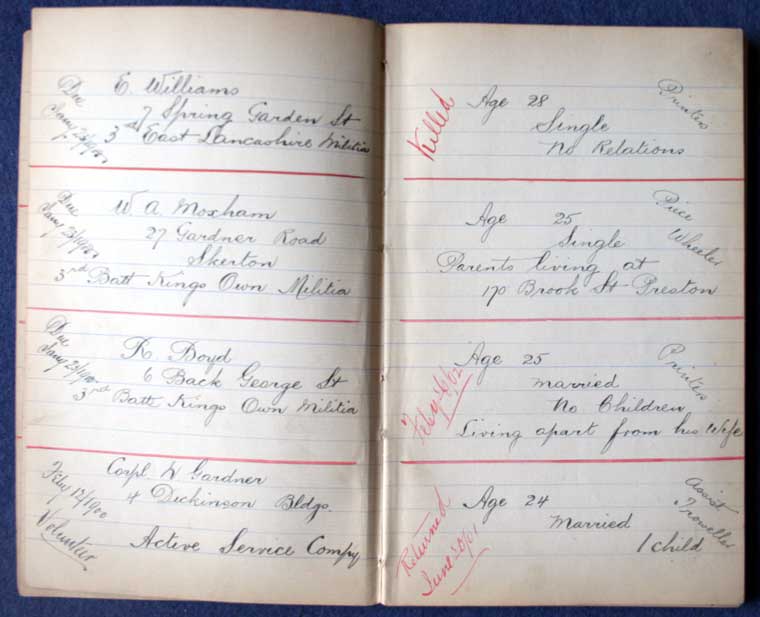 E. Williams
7 Spring Garden St
3rd East Lancashire Militia
Killed
Age 28
Printers
Single
No Relations
W. A. Moxham
27 Gardner Road
Skerton
3rd Batt Kings Own Militia
Age 25
Piece
Wheeler
Single
Parents living at
170 Brook St Preston
R. Boyd
6 Back George St
3rd Batt Kings Own Militia
Feby 6/02
Age 25
Printers
Married
No Children
Living apart from his Wife
Feby 12/1900
Volunteer
Corpl W Gardner
4 Dickinson Bldgs.
Active Service Compy
Returned
June 20/01
Age 24
Assist
Traveller
Married
1 child